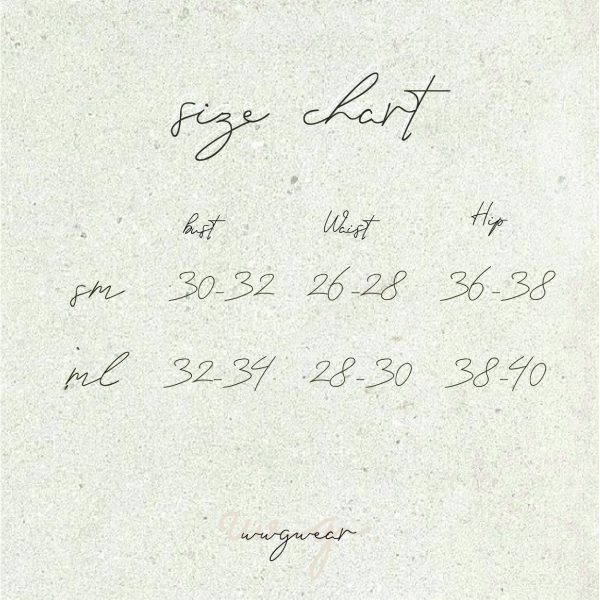 size chart
bust Waist Hip
sm 30-32 26-28 36-38
ml 32-34 28-30 38-40
wwgwear